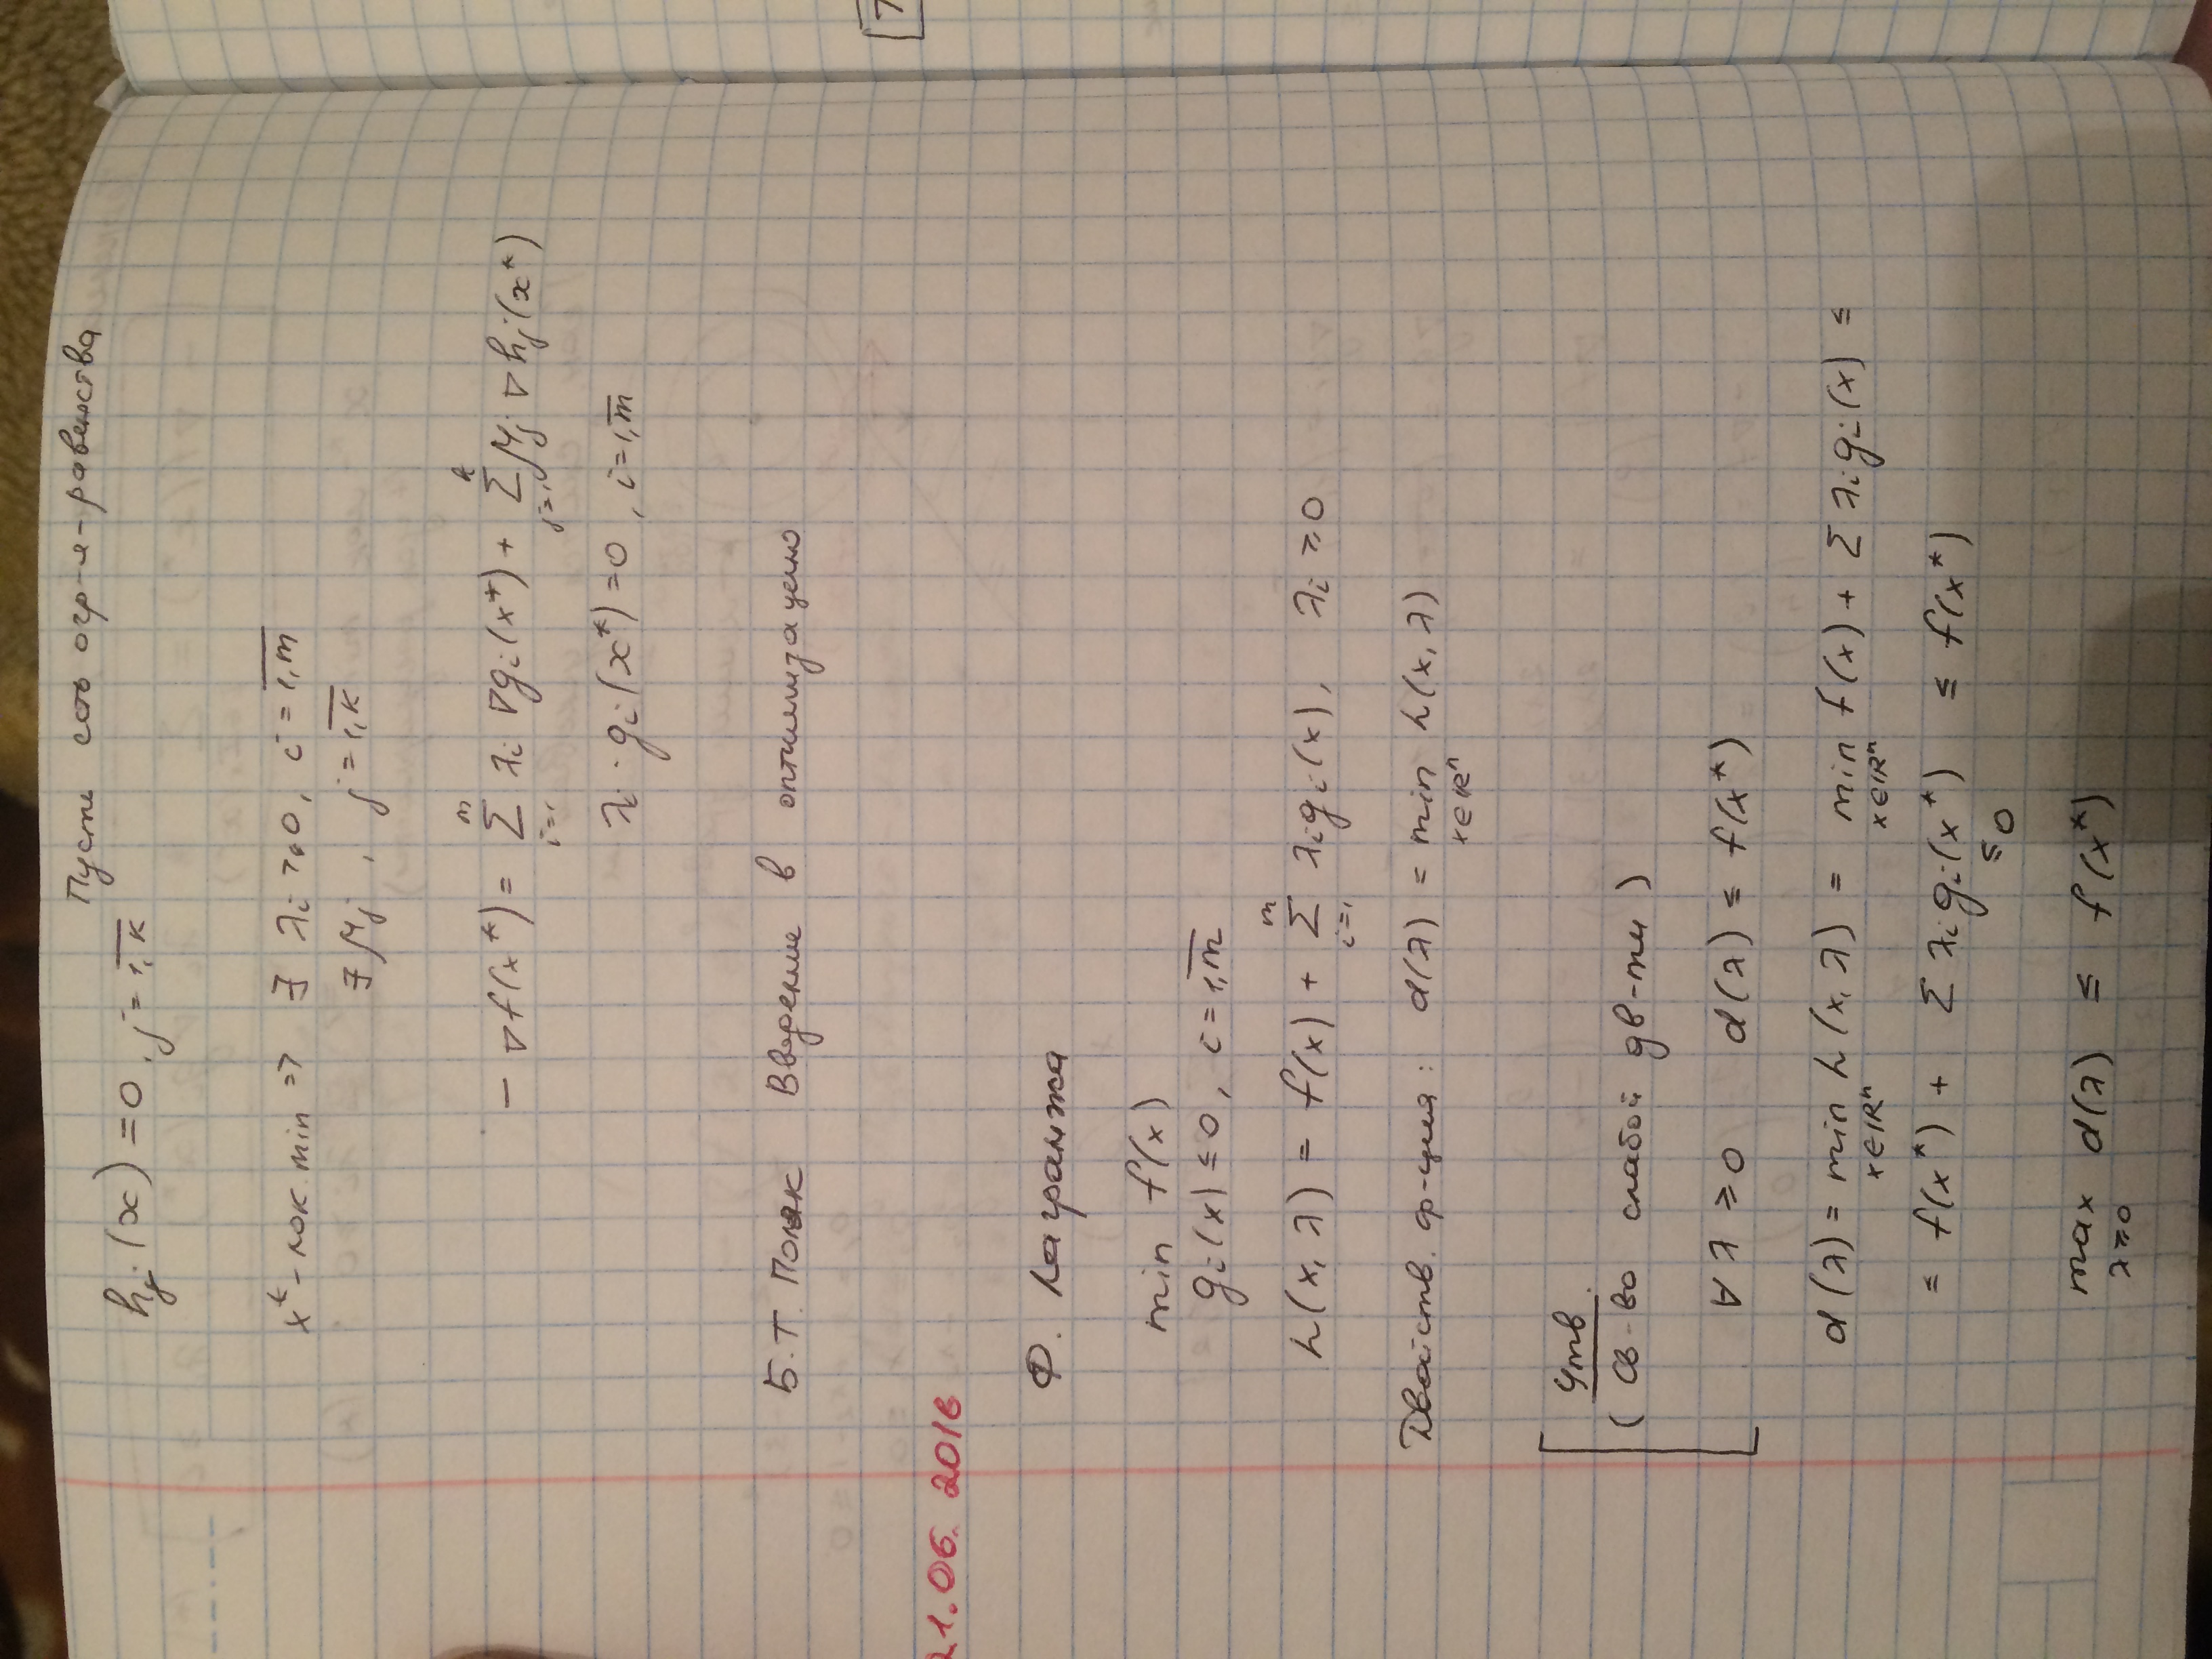 Пусть есть огр-я-равенства
hⱼ(x) = 0, j = 1,k
x* - лок. min => ∃ λᵢ ≥ 0, i = 1,m
∃ μⱼ, j = 1,k
- ∇f(x*) = ∑ᵢ₌₁ᵐ λᵢ ∇gᵢ(x*) + ∑ⱼ₌₁ᵏ μⱼ ∇hⱼ(x*)
λᵢ · gᵢ(x*) = 0, i = 1,m
Б.Т. Поляк Введение в оптимизацию
21.06.2016
Ф. Лагранжа
min f(x)
gᵢ(x) ≤ 0, i = 1,m
L(x, λ) = f(x) + ∑ᵢ₌₁ᵐ λᵢ gᵢ(x), λᵢ ≥ 0
Двойств. ф-ция: d(λ) = min L(x, λ)
x∈ℝⁿ
Утв.
(св-во слабой дв-ти)
∀ λ ≥ 0 d(λ) ≤ f(x*)
d(λ) = min L(x, λ) = min f(x) + ∑ λᵢ gᵢ(x) ≤
x∈ℝⁿ x∈ℝⁿ
= f(x*) + ∑ λᵢ gᵢ(x*) ≤ f(x*)
≤ 0
max d(λ) ≤ f(x*)
λ ≥ 0